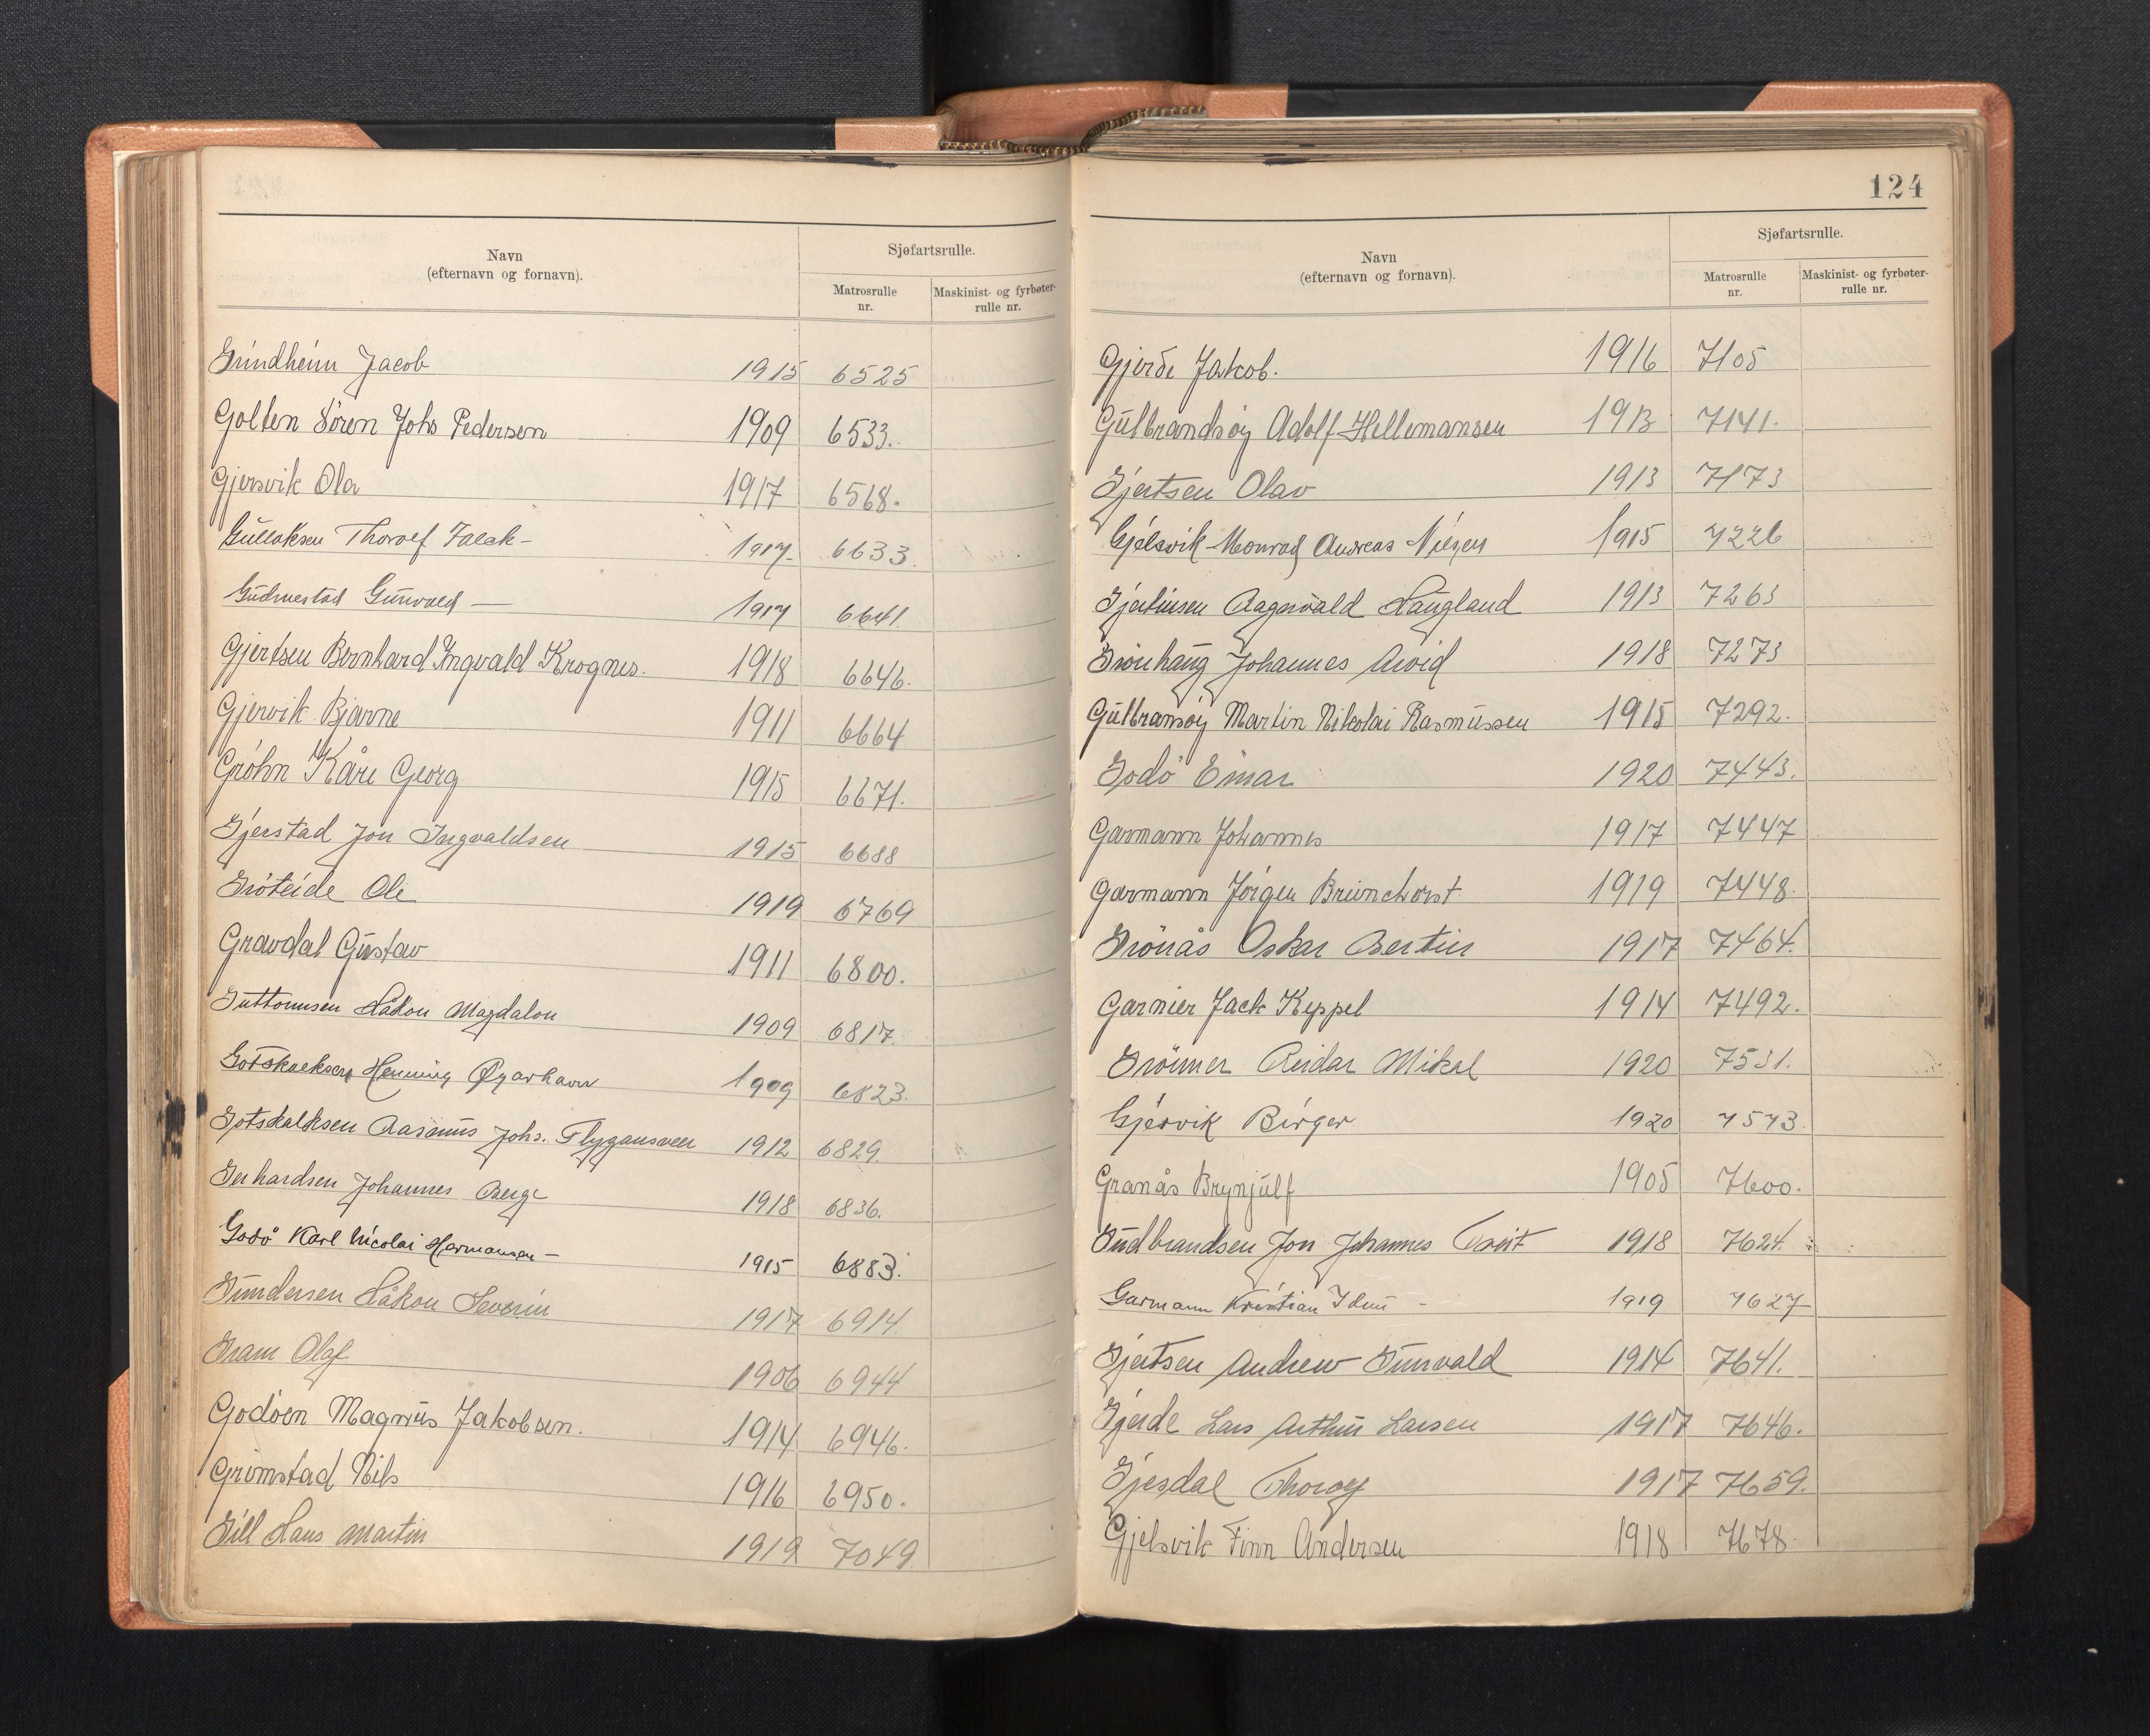 Navn
(efternavn og fornavn).
Sjøfartsrulle.
Matrosrulle
nr.
Maskinist- og fyrbøter-
rulle nr.
Grindheim Jacob 1915 6525
Golten Sören Johs Pedersen 1909 6533.
Gjersvik Ola 1917 6568.
Gullaksen Thorolf Falck- 1917- 6633.
Gudmestad Gunvald — 1917 6641.
Gjertsen Bernhard Ingvald Krognes. 1918 6646.
Gjervik Bjarne 1911 6664
Gröhn Kåre Georg 1915 6671.
Gjerstad Jon Ingvaldsen 1915 6688
Gröteide Ole 1919 6769
Gravdal Gustav 1911 6800.
Guttormsen Håkon Magdalon 1909 6817.
Gotskalksen Henning Øyarhavn 1909 6823.
Gotskalksen Rasmus Johs. 1912 6829.
Gerhardsen Johannes Berge 1918 6836.
Godö Karl Nicolai Hermansen — 1915 6883.
Gundersen Håkon Severin 1917 6914
Gram Olaf 1906 6944
Godöen Magnus Jakobsen. 1914 6946.
Grimstad Nils 1916 6950.
Gill Hans Martin 1919 7049.
124
Navn
(efternavn og fornavn).
Sjøfartsrulle.
Matrosrulle
nr.
Maskinist- og fyrbøter-
rulle nr.
Gjerde Jakob. 1916 7105
Gulbrandsöy Adolf Hellemansen 1913 7141.
Gjertsen Olav 1913 7173
Gjelsvik Monrad Andreas 1915 7226
Gjertinsen Aagevald Haugland 1913 7263
Grönhaug Johannes Arvid 1918 7273
Gulbransöy Martin Nikolai Rasmussen 1915 7292.
Godö Einar 1920 7443.
Garmann Johannes 1917 7447
Garmann Jörgen Brunchorst 1919 7448.
Grönås Oskar Bertin 1917 7464.
Garnier Jack Keppel 1914 7492.
Grönner Reidar Mikal 1920 7531.
Gjervik Birger 1920 7573.
Granås Brynjulf 1905 7600.
Gudbrandsen Jon Johannes Tveit 1918 7624.
Garmann Kristian - 1919 7627
Gjertsen Andrew Gunvald 1914 7641.
Gjerde Lars Arthur Larsen 1917 7646.
Gjesdal Thorolf 1917 7659.
Gjelsvik Finn Andersen 1918 7678.